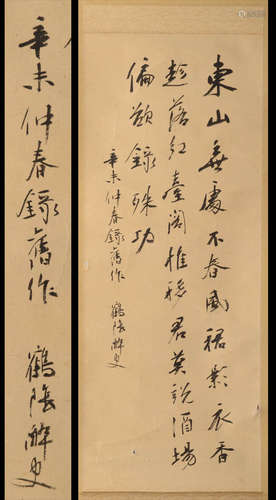 東山無處不春風裙影衣香
趁落紅臺閣推君莫說酒場
偏欲錄殊功
辛未仲春錄舊作 鶴陰醉史
辛未仲春錄舊作 鶴陰醉史